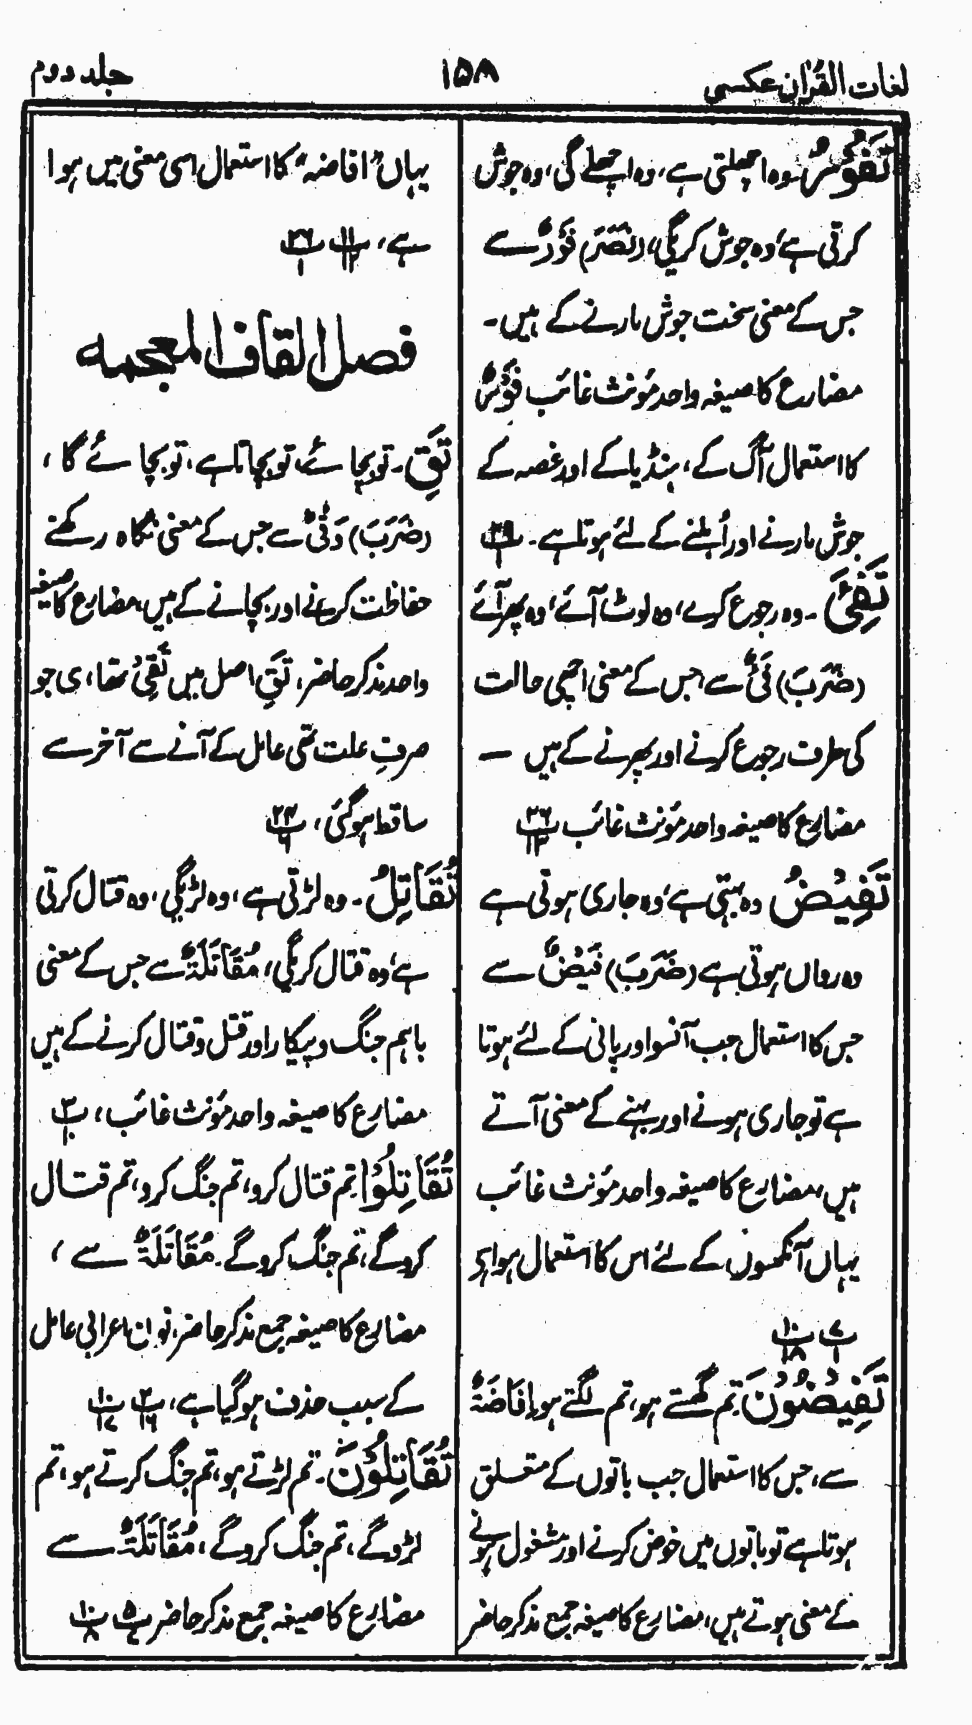 لغات القرآن عکسی
۱۵۸
جلد دوم
تَفُوْرُ۔ وہ اچھلتی ہے، وہ اچھلے گی، وہ جوش
کرتی ہے، وہ جوش کریگی، (نَصَرَ) فَوْرٌ سے
جس کے معنی سخت جوش مارنے کے ہیں۔
مضارع کا صیغہ واحد مؤنث غائب فَوْرٌ
کا استعمال آگ کے، ہنڈیا کے اور غصہ کے
جوش مارنے اور اُبلنے کے لئے ہوتا ہے۔ پ۲۹
تَفِیْٓءَ۔ وہ رجوع کرے، وہ لوٹ آئے، وہ پھر آئے
(ضَرَبَ) فَیْءٌ سے، جس کے معنی اچھی حالت
کی طرف رجوع کرنے اور پھرنے کے ہیں —
مضارع کا صیغہ واحد مؤنث غائب پ۲۶ ۱۳
تَفِیْضُ وہ بہتی ہے، وہ جاری ہوتی ہے
وہ رواں ہوتی ہے (ضَرَبَ) فَیْضٌ سے
جس کا استعمال جب آنسو اور پانی کے لئے ہوتا
ہے تو جاری ہونے اور بہنے کے معنی آتے
ہیں، مضارع کا صیغہ واحد مؤنث غائب
یہاں آنکھوں کے لئے اس کا استعمال ہوا ہے
پ۷ ۱ پ۱۰ ۱۸
تُفِیْضُوْنَ تم گھستے ہو، تم لگتے ہو اِفَاضَۃٌ
سے، جس کا استعمال جب باتوں کے متعلق
ہوتا ہے تو باتوں میں خوض کرنے اور مشغول ہونے
کے معنی ہوتے ہیں، مضارع کا صیغہ جمع مذکر حاضر
یہاں "افاضہ" کا استعمال اسی معنی میں ہوا
ہے، پ۱۱ ۱۲ پ۲۶ ۱
فصل القاف المعجمہ
تَقِ۔ تو بچائے، تو بچاتا ہے، تو بچائے گا،
(ضَرَبَ) وَقْیٌ سے جس کے معنی نگاہ رکھنے
حفاظت کرنے اور بچانے کے ہیں، مضارع کا صیغہ
واحد مذکر حاضر، تَقِ اصل میں تَقِیْ تھا، ی جو
حرفِ علت تھی عامل کے آنے سے آخر سے
ساقط ہو گئی، پ۲۴ ۶
تُقَاتِلُ۔ وہ لڑتی ہے، وہ لڑیگی، وہ قتال کرتی
ہے، وہ قتال کریگی، مُقَاتَلَۃٌ سے جس کے معنی
باہم جنگ و پیکار اور قتل و قتال کرنے کے ہیں
مضارع کا صیغہ واحد مؤنث غائب، پ۳ ۱۰
تُقَاتِلُوْا تم قتال کرو، تم جنگ کرو، تم قتال
کروگے، تم جنگ کروگے۔ مُقَاتَلَۃٌ سے،
مضارع کا صیغہ جمع مذکر حاضر، نون اعرابی عامل
کے سبب حذف ہو گیا ہے، پ۲ ۱۶ پ۱۰ ۱۷
تُقَاتِلُوْنَ۔ تم لڑتے ہو، تم جنگ کرتے ہو، تم
لڑوگے، تم جنگ کروگے، مُقَاتَلَۃٌ سے
مضارع کا صیغہ جمع مذکر حاضر پ۵ پ۱۰ ۸